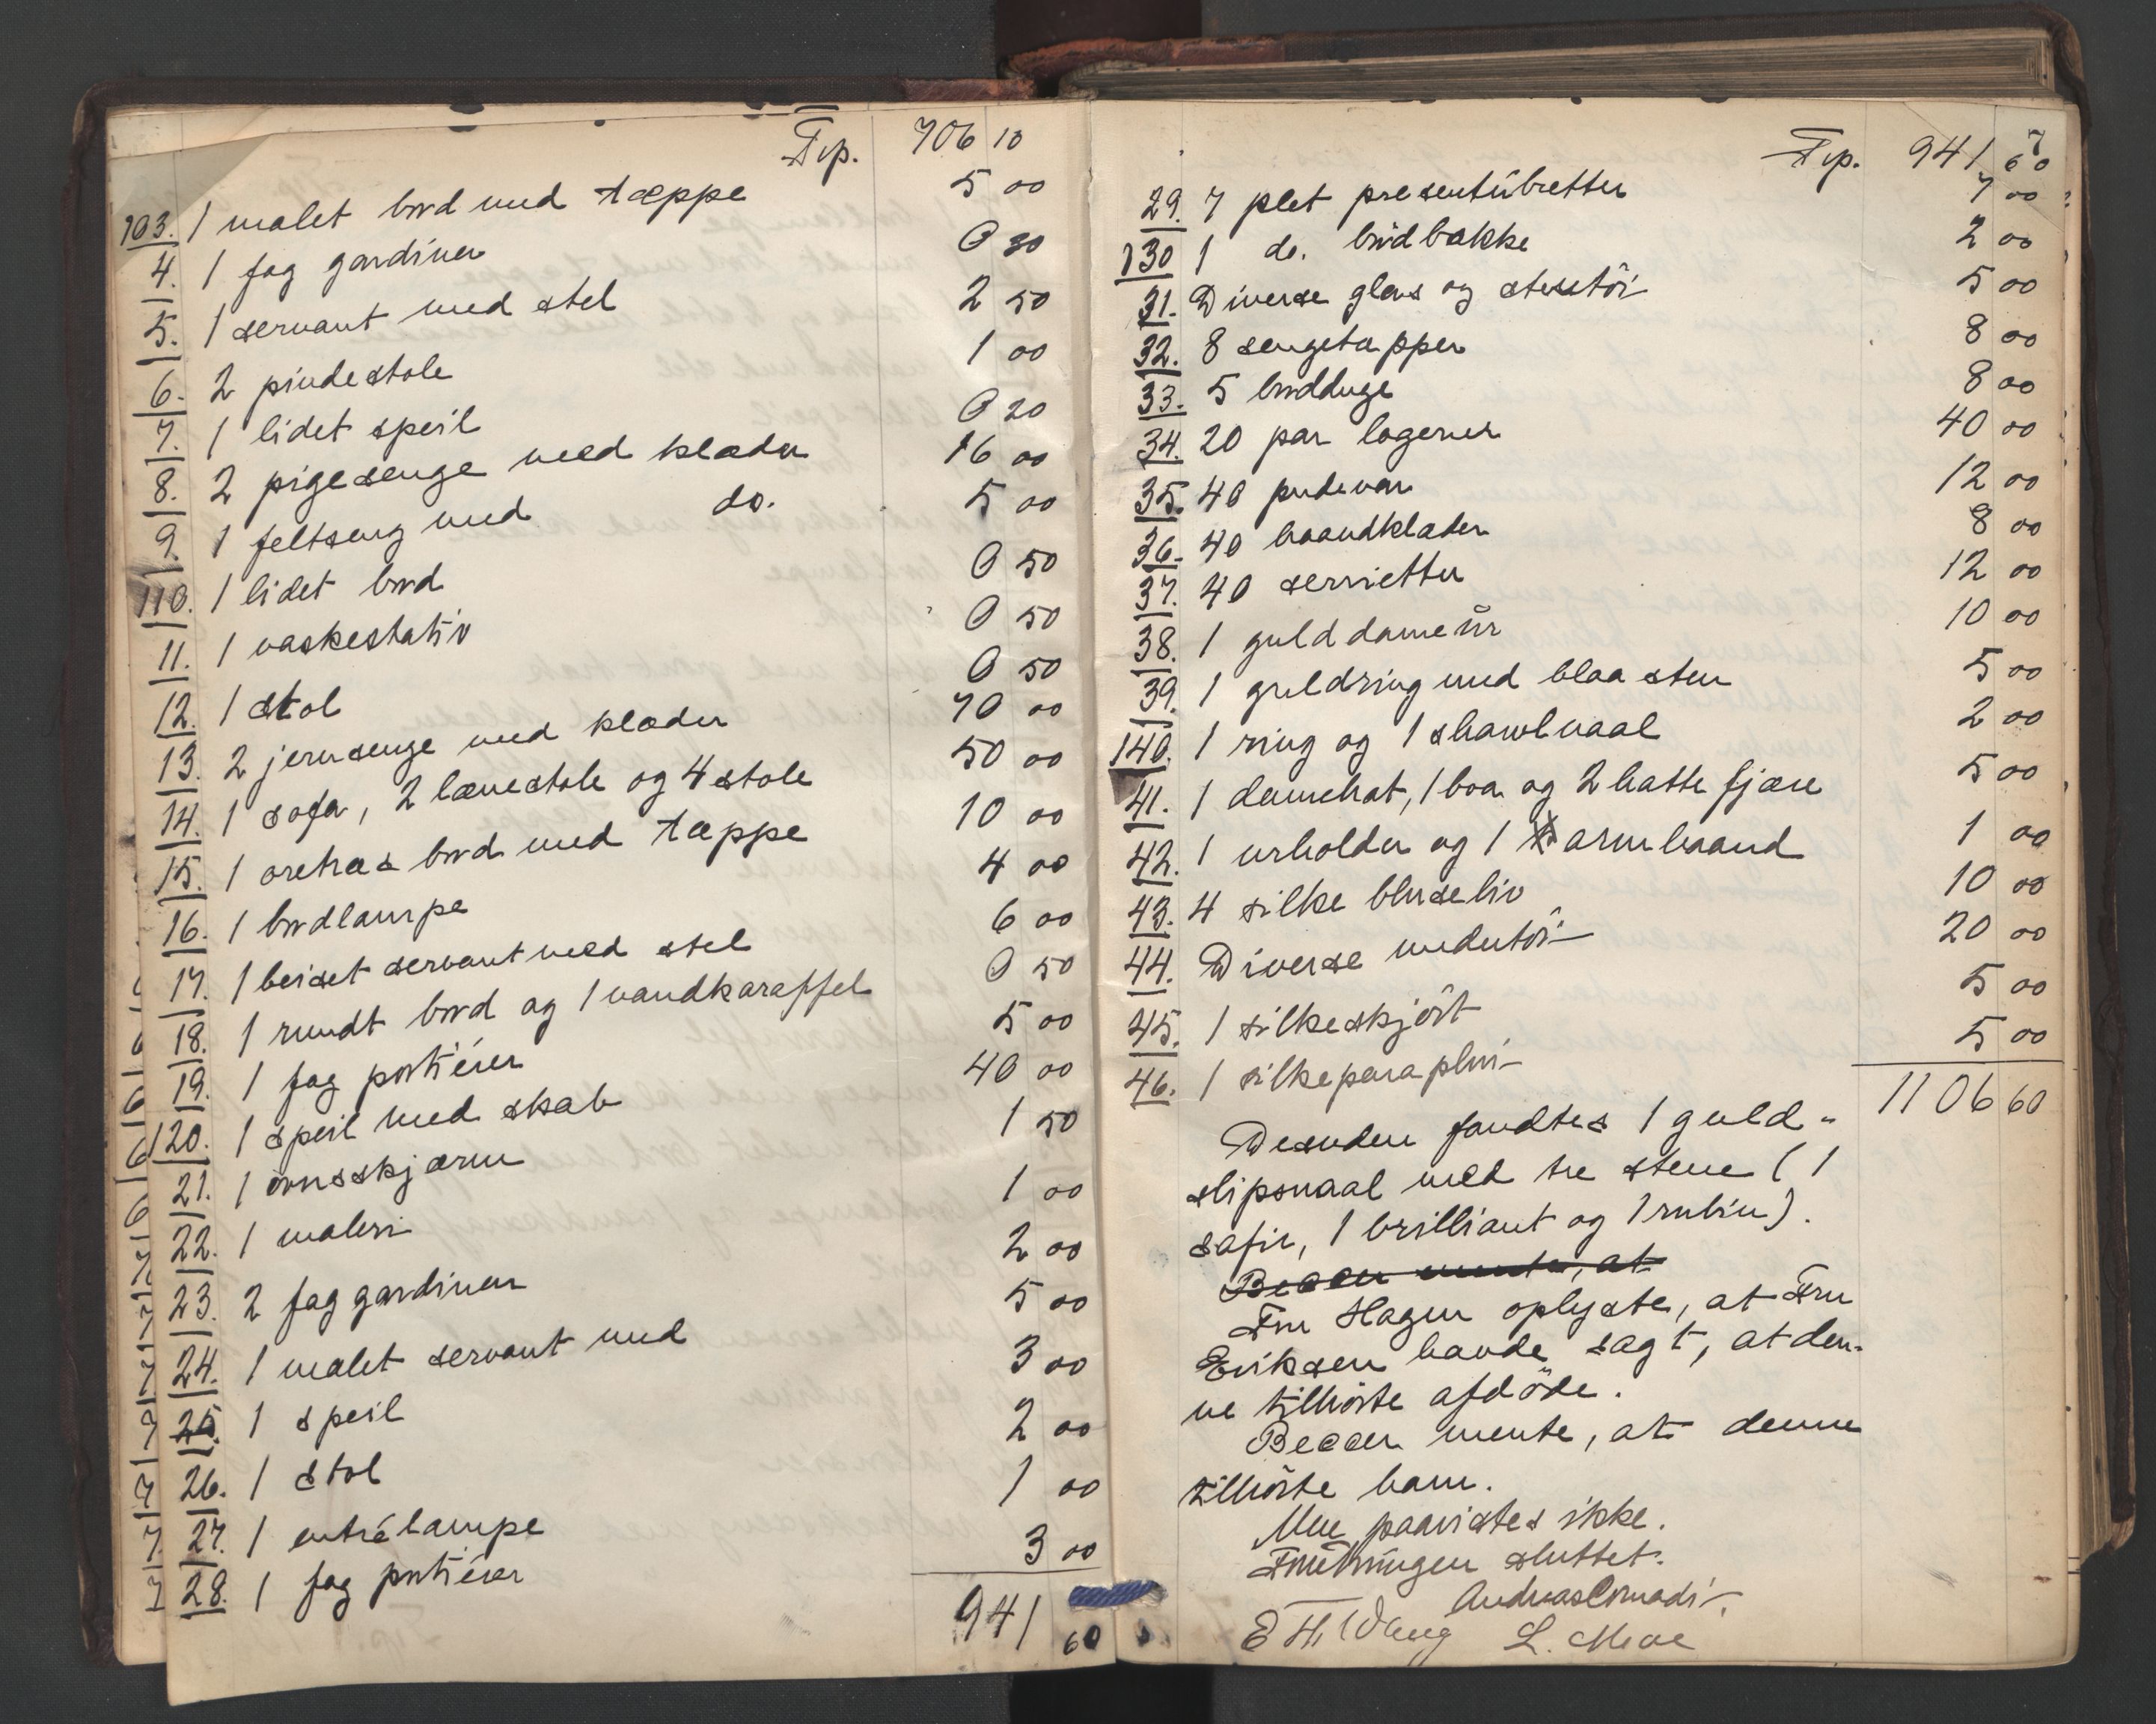 Trp. 706 10
103. 1 malet bord med tæppe 5 00
4. 1 fag gardiner 0 80
5. 1 servant med stel 2 50
6. 2 pindestole 1 00
7. 1 lidet speil 0 20
8. 2 pigesenge med klæder 16 00
9. 1 feltseng med do. 5 00
110. 1 lidet bord 0 50
11. 1 vaskestativ 0 50
12. 1 stol 0 50
13. 2 jernsenge med klæder 70 00
14. 1 sofa, 2 lænestole og 4 stole 50 00
15. 1 oretræs bord med tæppe 10 00
16. 1 bordlampe 4 00
17. 1 beiset servant med stel 6 00
18. 1 rundt bord og 1 vandkaraffel 0 50
19. 1 fag portiérer 5 00
120. 1 speil med skab 40 00
21. 1 ovnsskjærm 1 50
22. 1 maleri 1 00
23. 2 fag gardiner 2 00
24. 1 malet servant med 5 00
25. 1 speil 3 00
26. 1 stol 2 00
27. 1 entrélampe 1 00
28. 1 fag portiérer 3 00
941 60
7
Trp. 941 60
29. 7 plet presentérbretter 7 00
130 1 do. brödbakke 2 00
31. Diverse glas og stentöi 5 00
32. 8 sengetæpper 8 00
33. 5 bordduge 8 00
34. 20 par lagener 40 00
35. 40 pudevar 12 00
36. 40 haandklæder 8 00
37. 40 servietter 12 00
38. 1 guld dameur 10 00
39. 1 guldring med blaa sten 5 00
140. 1 ring og 1 shawlnaal 2 00
41. 1 damehat, 1 boa og 2 hattefjære 5 00
42. 1 urholder og 1 armbaand 1 00
43. 4 silke bluseliv 10 00
44. Diverse undertöi 20 00
45. 1 silkeskjört 5 00
46. 1 silkeparaplui 5 00
1106 60
Desuden fandtes 1 guld-
slipsnaal med tre stene (1
safir, 1 brilliant og 1 rubin).
Becker mente, at
Fru Hagen oplyste, at Fru
Eriksen havde sagt, at den-
ne tilhörte afdöde.
Becker mente, at denne
tilhörte ham.
Mere paavistes ikke.
Forretningen sluttet.
Andreas Conradi
E H. Wang L. Moe